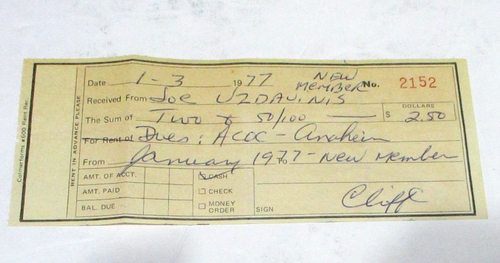 Date 1-3 1977 NEW MEMBER No. 2152
Received From Joe UZDAVINIS DOLLARS
The Sum of Two & 50/100 — $ 2.50
For Rent of Dues: ACCC - Anaheim
From January 1977 - New Member
AMT. OF ACCT. CASH
AMT. PAID CHECK
BAL. DUE MONEY ORDER SIGN Cliff
RENT IN ADVANCE PLEASE